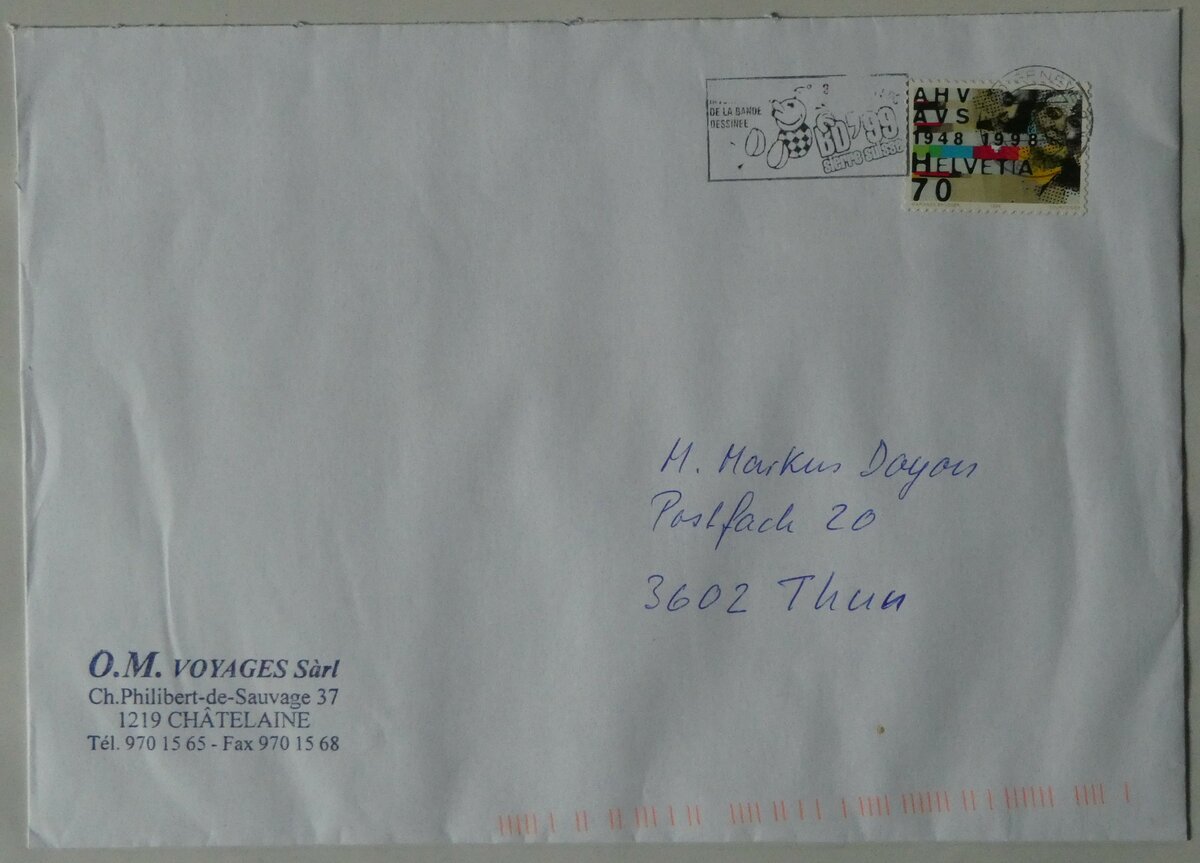 DE LA BANDE
DESSINEE
BD'99
Sierre Suisse
AHV
AVS
1948 1998
HELVETIA
70
M. Markus Dayon
Postfach 20
3602 Thun
O.M. VOYAGES Sàrl
Ch.Philibert-de-Sauvage 37
1219 CHÂTELAINE
Tél. 970 15 65 - Fax 970 15 68